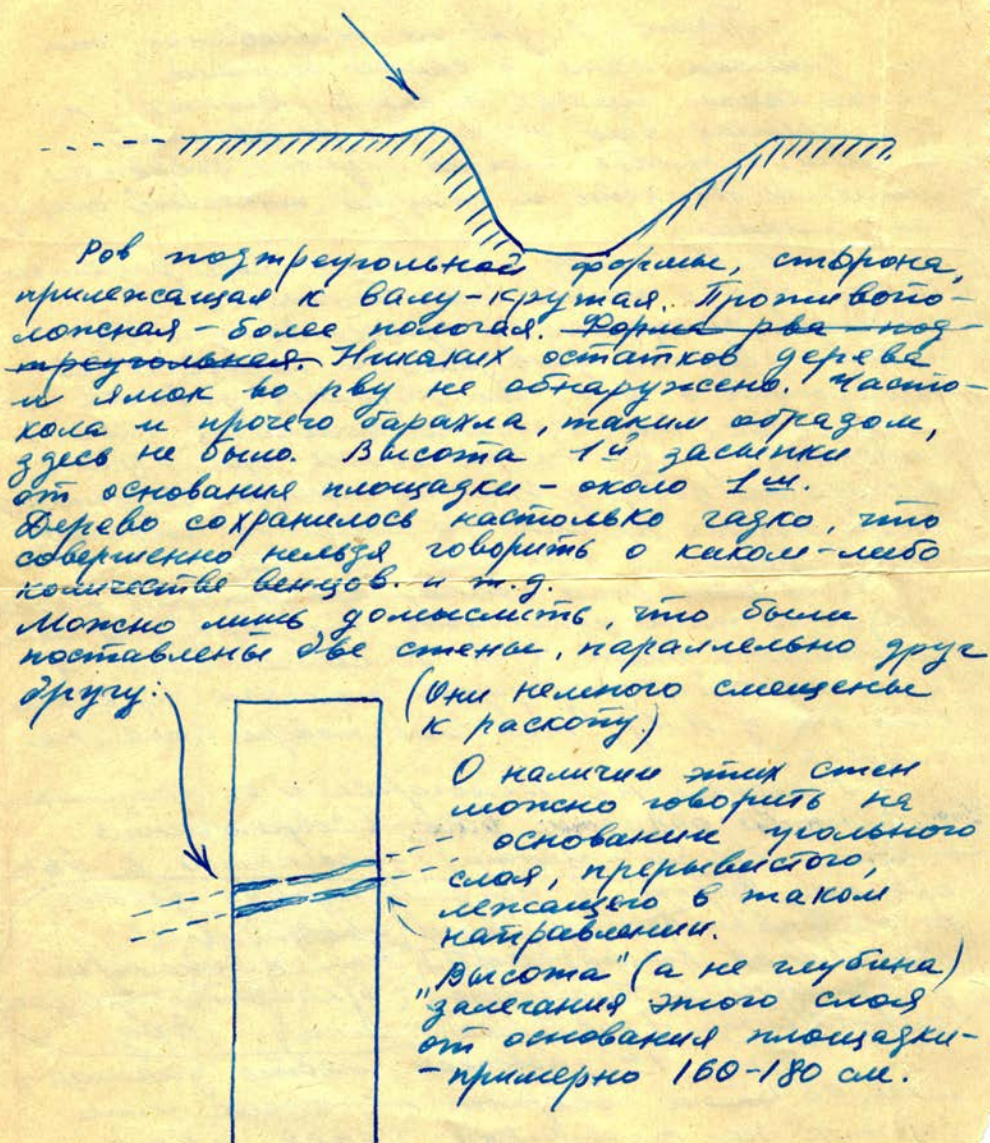 Ров подтреугольной формы, сторона,
прилежащая к валу-крутая. Противопо-
ложная - более пологая. Форма рва - под-
треугольная. Никаких остатков дерева
и ямок во рву не обнаружено. Часто-
кола и прочего барахла, таким образом,
здесь не было. Высота 1й засыпки
от основания площадки - около 1 м.
Дерево сохранилось настолько гадко, что
совершенно нельзя говорить о каком-либо
количестве венцов. и т.д.
Можно лишь домыслить, что были
поставлены две стены, параллельно друг
другу:
(Они немного смещены
к раскопу)
О наличии этих стен
можно говорить на
основании угольного
слоя, прерывистого,
лежащего в таком
направлении.
"Высота" (а не глубина)
залегания этого слоя
от основания площадки-
- примерно 160-180 см.